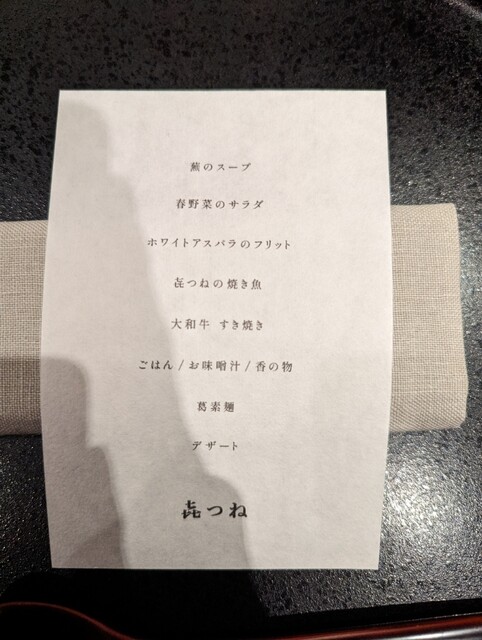 蕪のスープ
春野菜のサラダ
ホワイトアスパラのフリット
㐂つねの焼き魚
大和牛 すき焼き
ごはん / お味噌汁 / 香の物
葛素麺
デザート
㐂つね